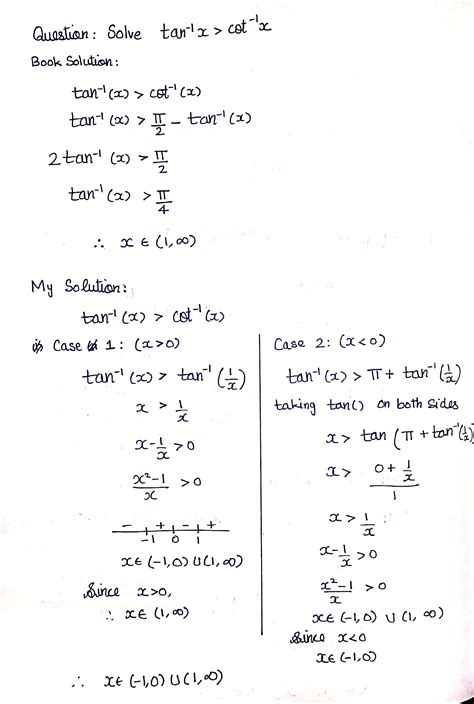 Question: Solve tan⁻¹x > cot⁻¹x
Book Solution:
tan⁻¹(x) > cot⁻¹(x)
tan⁻¹(x) > π/2 - tan⁻¹(x)
2tan⁻¹(x) > π/2
tan⁻¹(x) > π/4
∴ x ∈ (1,∞)
My Solution:
tan⁻¹(x) > cot⁻¹(x)
Case 1: (x>0)
tan⁻¹(x) > tan⁻¹(1/x)
x > 1/x
x-1/x >0
x²-1/x >0
- + - +
-1 0 1
x∈(-1,0)U(1,∞)
Since x>0,
∴ x∈(1,∞)
Case 2: (x<0)
tan⁻¹(x) > π + tan⁻¹(1/x)
taking tan() on both sides
x> tan(π + tan⁻¹(1/x)
x> 0+1/x/1
x>1/x
x-1/x >0
x²-1/x >0
x∈(-1,0) U (1,∞)
since x<0
x∈(-1,0)
∴ x∈(-1,0)U(1,∞)